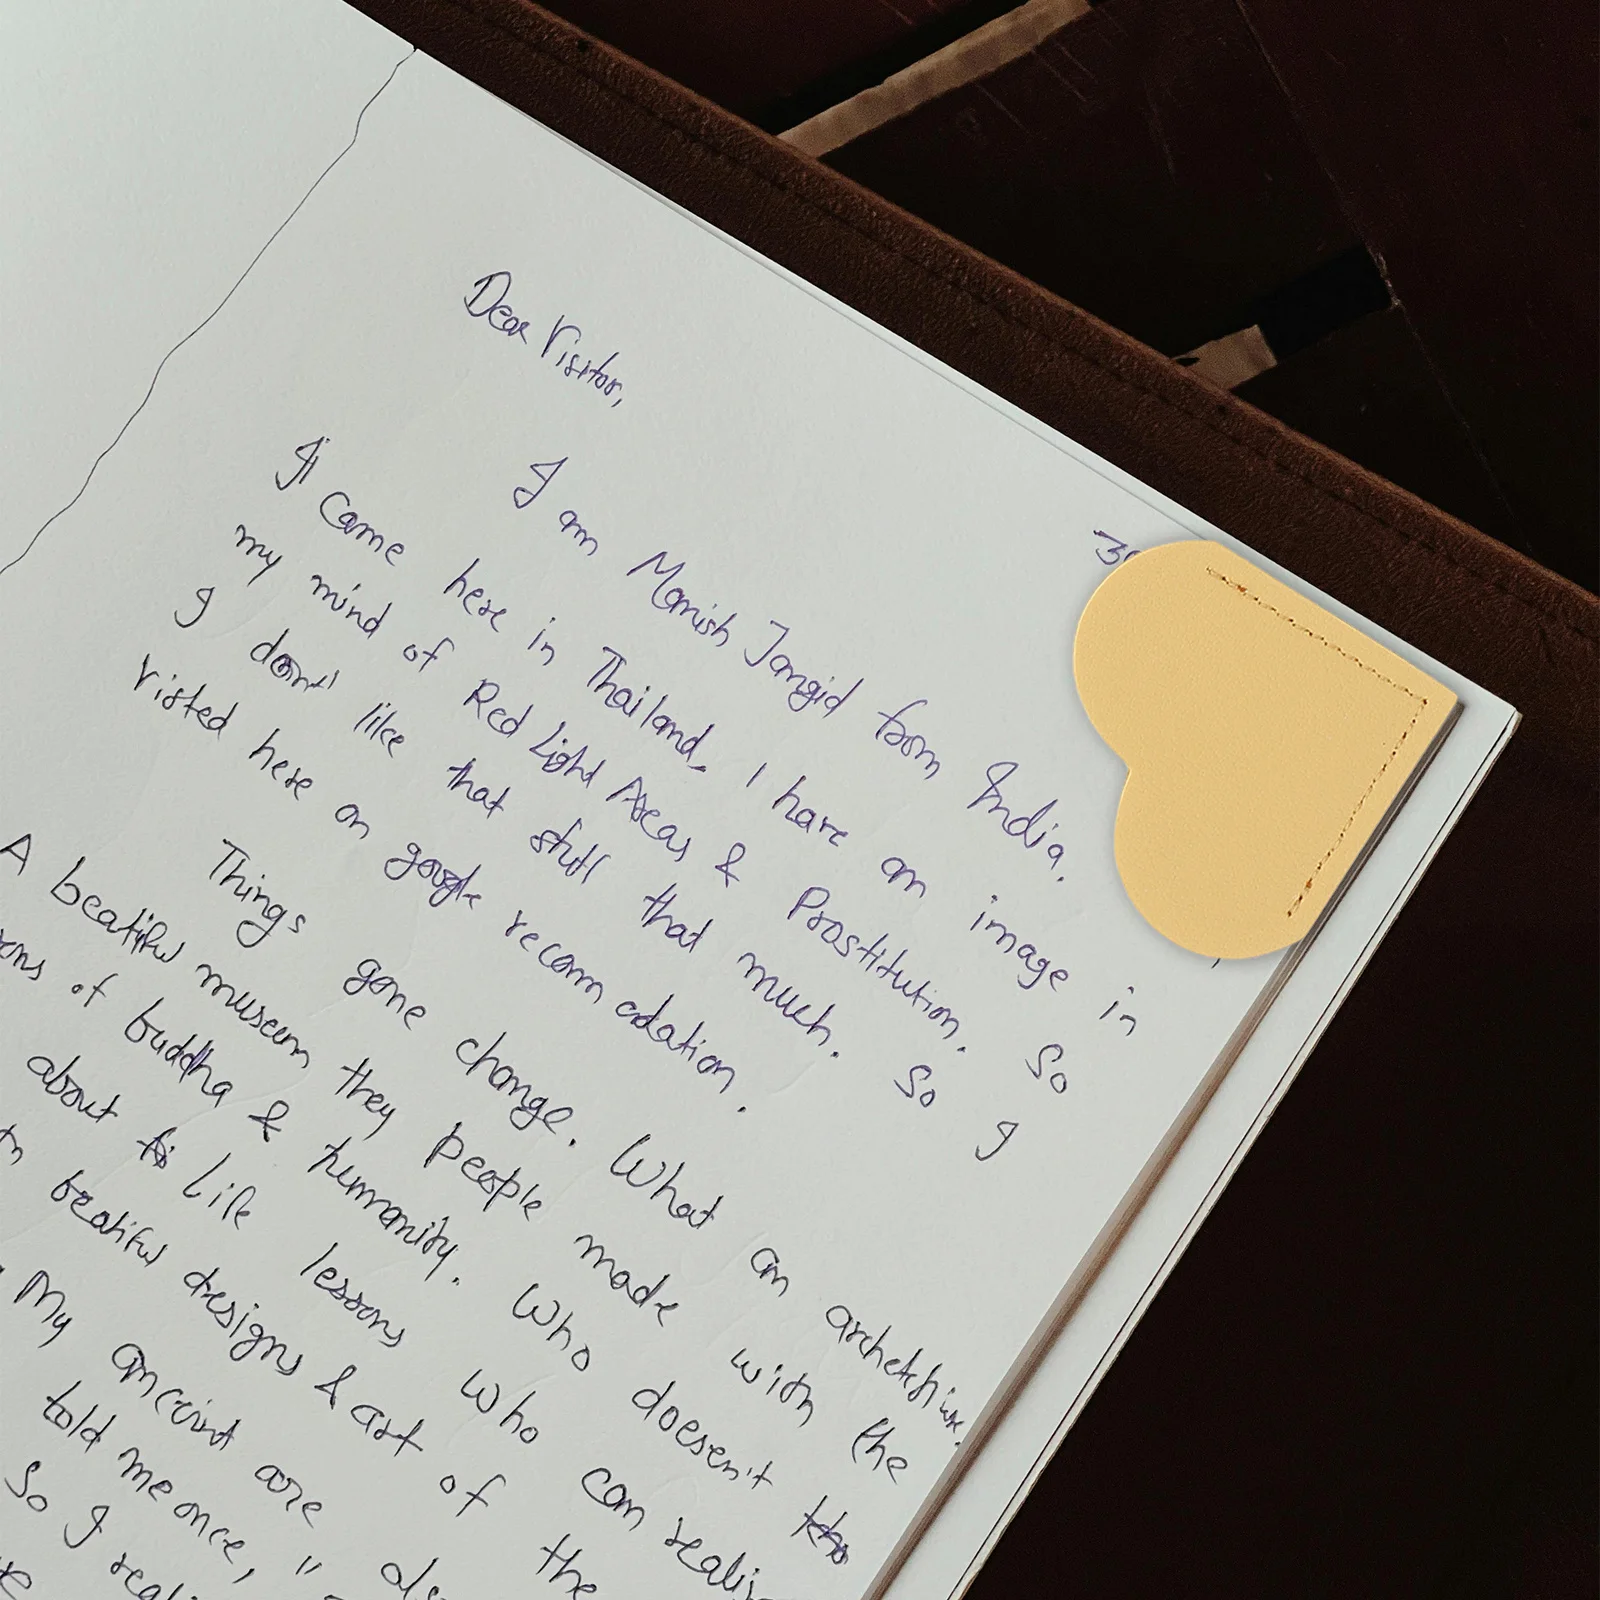 30
Dear Visitor,
I am Manish Jangid from India.
I came here in Thailand, I have an image in
my mind of Red Light Areas & Prostitution. So
I don't like that stuff that much. So I
visted here on google recomm adation.
Things gone change. What an archetchure.
A beatiful museum they people made with the
of buddha & humanity. Who doesen't
about Life lessons who can
beatiful designs & art of the
My anceint are
told me once, "
So I